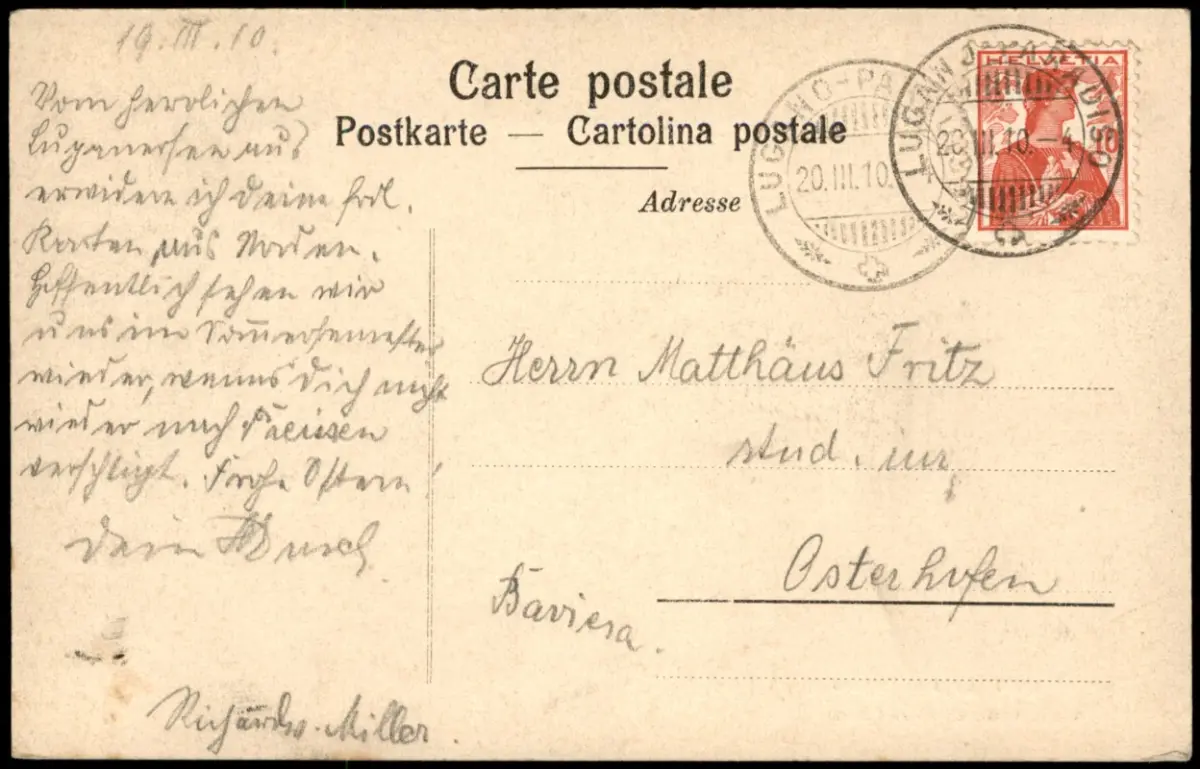 19.III.10.
Vom herrlichen
Luganersee aus
erwidere ich Deine frdl.
Karten aus Norden.
Hoffentlich sehen wir
uns im Sommersemester
wieder, wenns Dich nicht
wieder nach
verschlägt. Frohe Ostern!
Dein
Richard Miller.
Carte postale
Postkarte — Cartolina postale
Adresse
LUGANO-PA
20.III.10.
LUGANO-PARADISO
20.III.10.-4
HELVETIA
10
Herrn Matthäus Fritz
stud.
Osterhofen
Baviera.